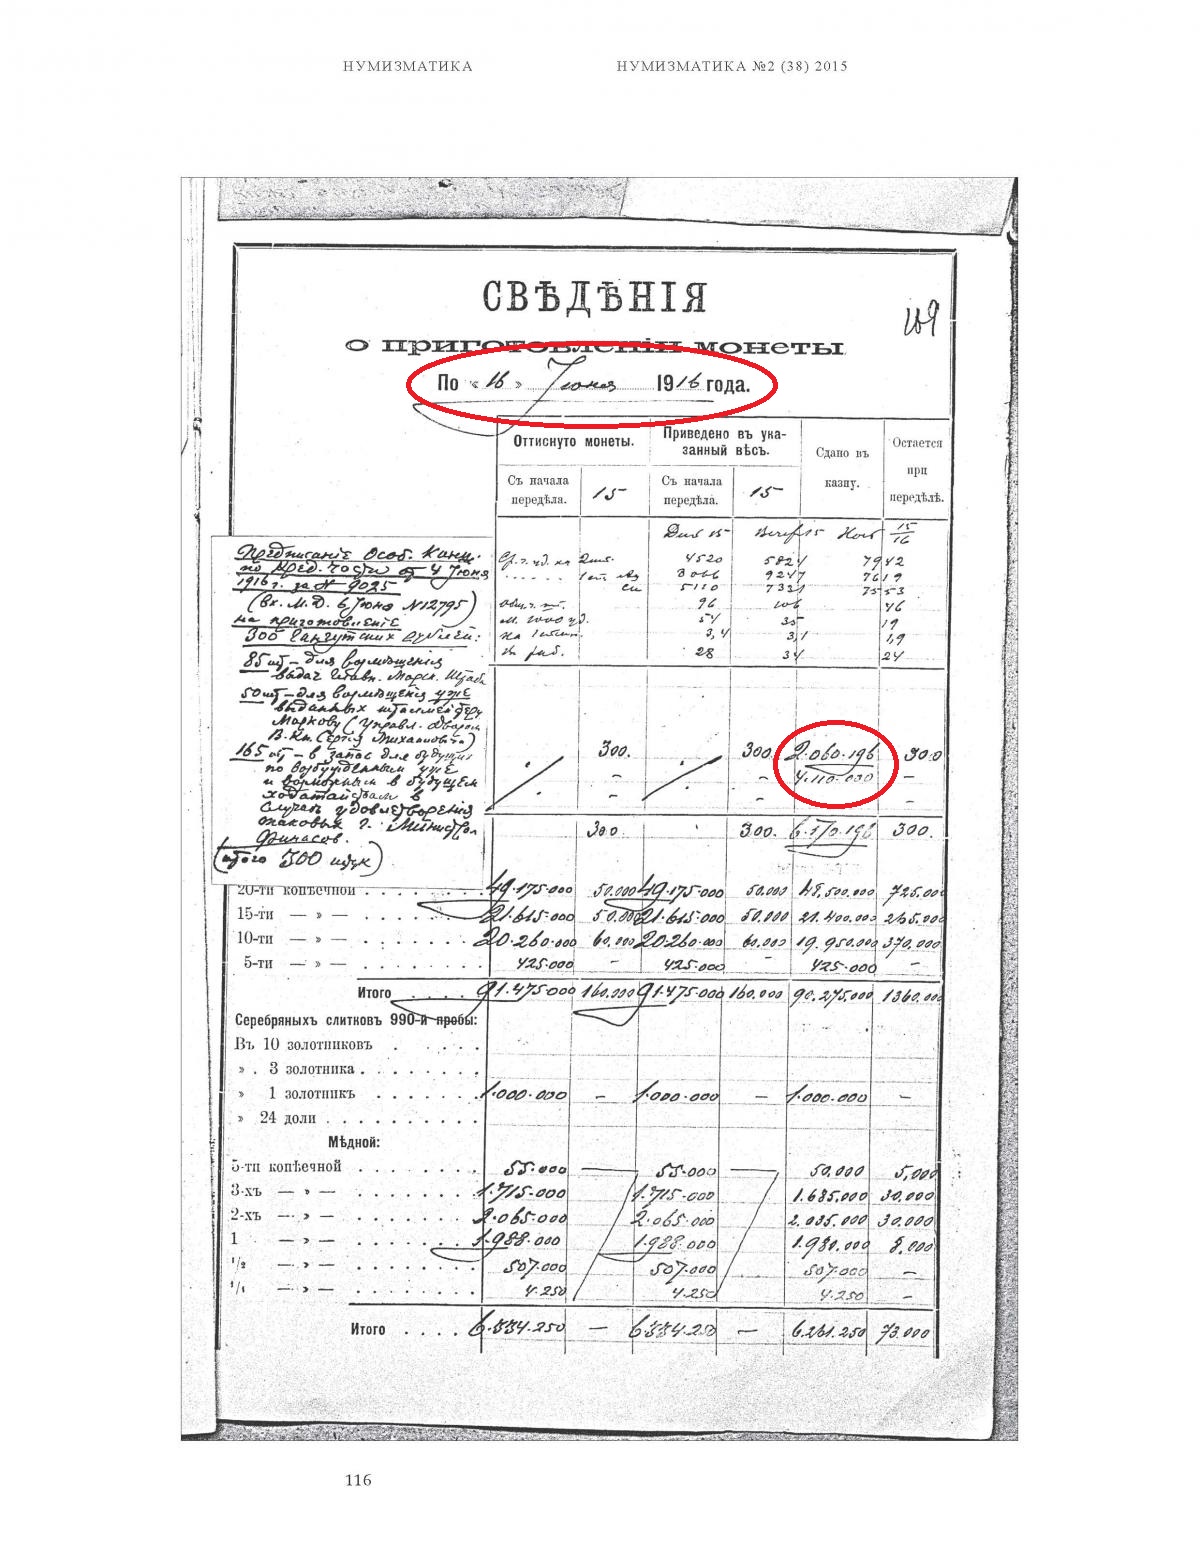 НУМИЗМАТИКА НУМИЗМАТИКА №2 (38) 2015
СВѢДѢНІЯ
109
о приготовленіи монеты
По «16» Іюня 1916 года.
Оттиснуто монеты. Приведено въ ука-занный вѣсъ. Сдано въ казну. Остается при передѣлѣ.
Съ начала передѣла. 15 Съ начала передѣла. 15
15/16
4520 5824 7942
3066 9247 7619
5110 7321 7553
96 106 46
54 35 19
3,4 3,1 1,9
28 34 24
Предписаніе Особ. Канц.
по Кред. части от 4 Іюня
1916 г. за № 9025
(вх. М.Д. 6 Іюня N12795)
на приготовленіе
300 Гангутских рублей:
85 шт – для возмѣщенія
выдач Главн. Морск. Штаба
50 шт – для возмѣщенія уже
выданных шталмейстеру
Маркову (Управл. Двором
В. Кн. Сергія Михаиловича)
165 шт – в запас для будущих
по возбужденным уже
и возможным в будущем
ходатайствам в
случаѣ удовлетворенія
таковых г. Министром
Финансов.
(итого 300 штук)
300. 300. 2.060.196 300
– – 4.110.000 –
– – –
300. 300. 6.170.196 300.
20-ти копѣечной 49.175.000 50.000 49.175.000 50.000 48.500.000 725.000
15-ти — » — 21.615.000 50.000 21.615.000 50.000 21.400.000 265.000
10-ти — » — 20.260.000 60.000 20.260.000 60.000 19.950.000 370.000
5-ти — » — 425.000 – 425.000 – 425.000 –
Итого 91.475.000 160.000 91.475.000 160.000 90.275.000 1360.000
Серебряныхъ слитковъ 990-й пробы:
Въ 10 золотниковъ
» 3 золотника
» 1 золотникъ 1.000.000 – 1.000.000 – 1.000.000 –
» 24 доли
Мѣдной:
5-ти копѣечной 55.000 — 55.000 — 50.000 5,000
3-хъ — » — 1.715.000 1.715.000 1.685.000 30,000
2-хъ — » — 2.065.000 2.065.000 2.035.000 30.000
1 — » — 1.988.000 1.988.000 1.980.000 8.000
1/2 — » — 507.000 507.000 507.000 –
1/4 — » — 4.250 4.250 4.250 –
Итого 6.334.250 — 6.334.250 — 6.261.250 73.000
116